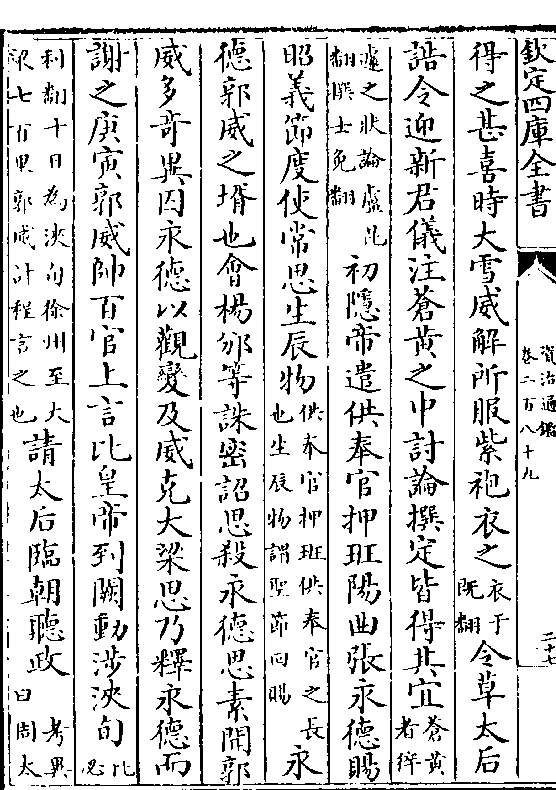 欽定四庫全書
資治通鑑
卷二百八十九
二十七
得之甚喜時大雪威解所服紫袍衣之衣于既翻令草太后
誥令迎新君儀注蒼黄之中討論撰定皆得其宜蒼黄者猝
遽之狀論盧昆翻撰士免翻初隱帝遣供奉官押班陽曲張永德賜
昭義節度使常思生辰物供奉官押班供奉官之長也生辰物謂聖節回賜永
德郭威之壻也會楊邠等誅密詔思殺永德思素聞郭
威多奇異囚永德以觀變及威克大梁思乃釋永德而
謝之庚寅郭威帥百官上言比皇帝到闕動涉浹旬比必
利翻十日為浹旬徐州至大梁七百里郭威計程言之也請太后臨朝聽政考異曰周太